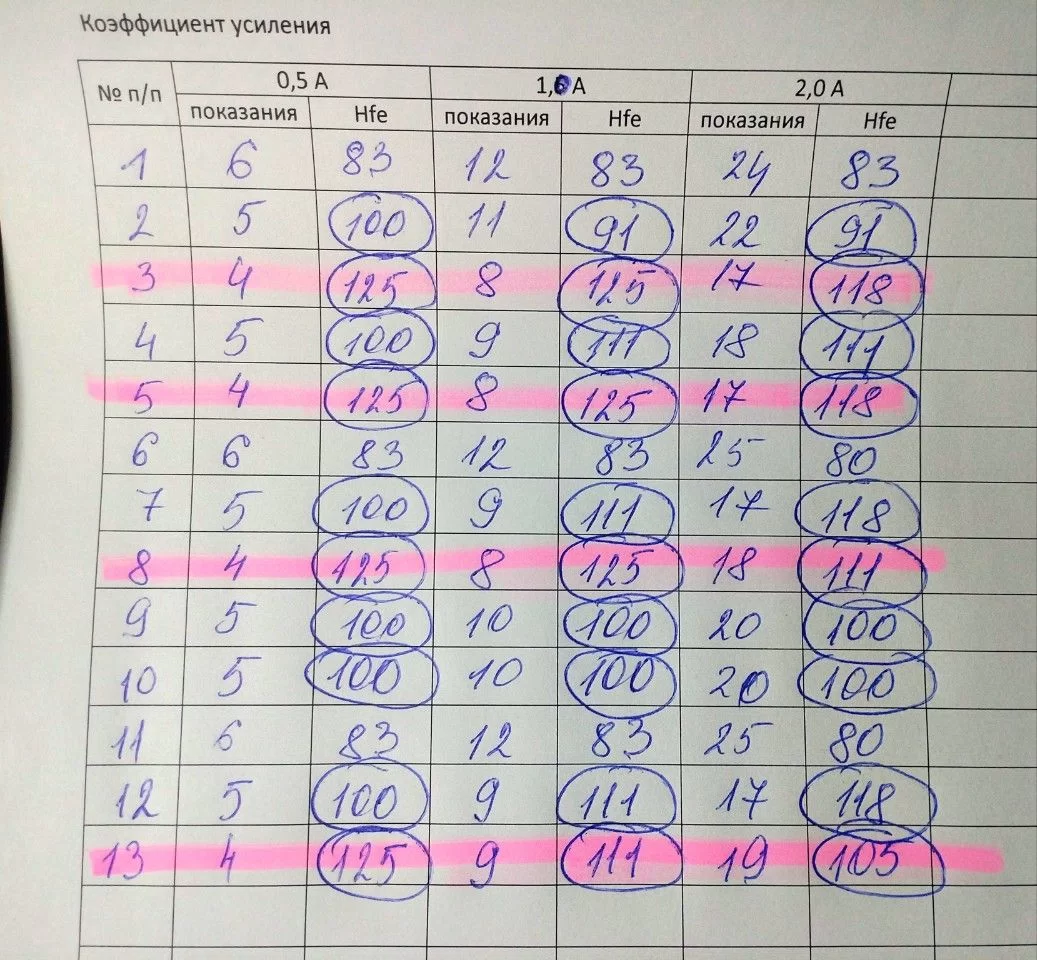 Коэффициент усиления
№ п/п 0,5 А 1,0 А 2,0 А
показания Hfe показания Hfe показания Hfe
1 6 83 12 83 24 83
2 5 100 11 91 22 91
3 4 125 8 125 17 118
4 5 100 9 111 18 111
5 4 125 8 125 17 118
6 6 83 12 83 25 80
7 5 100 9 111 17 118
8 4 125 8 125 18 111
9 5 100 10 100 20 100
10 5 100 10 100 20 100
11 6 83 12 83 25 80
12 5 100 9 111 17 118
13 4 125 9 111 19 105